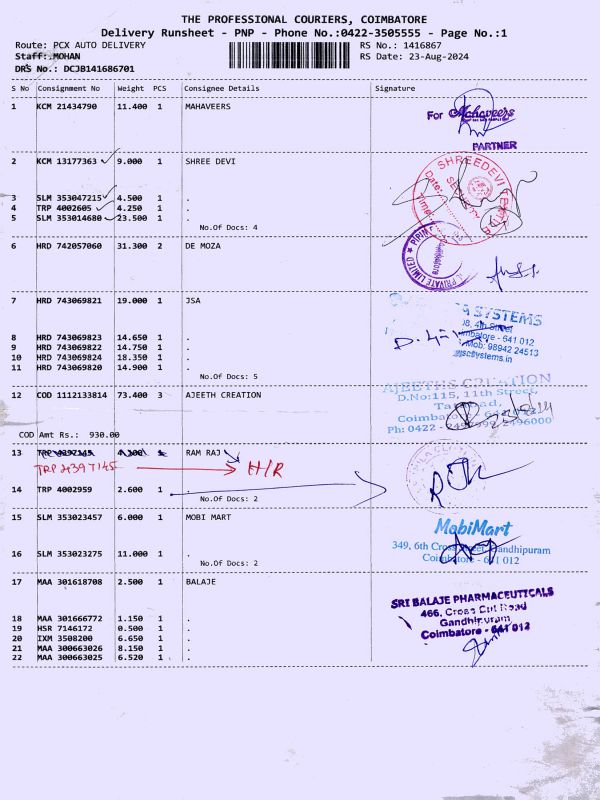 THE PROFESSIONAL COURIERS, COIMBATORE
Delivery Runsheet - PNP - Phone No.:0422-3505555 - Page No.:1
Route: PCX AUTO DELIVERY RS No.: 1416867
Staff: MOHAN RS Date: 23-Aug-2024
DRS No.: DCJB141686701
S No Consignment No Weight PCS Consignee Details Signature
1 KCM 21434790 11.400 1 MAHAVEERS
For Mahaveers
PARTNER
2 KCM 13177363 9.000 1 SHREE DEVI
SHREEDEVI TEXTILE
Date:
Time:
3 SLM 353047215 4.500 1 .
4 TRP 4002605 4.250 1 .
5 SLM 353014680 23.500 1 .
No.Of Docs: 4
6 HRD 742057060 31.300 2 DE MOZA
PRIVATE LIMITED
7 HRD 743069821 19.000 1 JSA
SYSTEMS
4th Street
- 641 012
Mob: 98942 24513
8 HRD 743069823 14.650 1 .
9 HRD 743069822 14.750 1 .
10 HRD 743069824 18.350 1 .
11 HRD 743069820 14.900 1 .
No.Of Docs: 5
12 COD 1112133814 73.400 3 AJEETH CREATION
AJEETHS CREATION
D.No:115, 11th Street,
Ph: 0422 -
COD Amt Rs.: 930.00
13 TRP 4397145 4.200 1 RAM RAJ
TRP 4397145 H/R
14 TRP 4002959 2.600 1 .
No.Of Docs: 2
15 SLM 353023457 6.000 1 MOBI MART
MobiMart
349, 6th Cross Street, Gandhipuram
Coimbatore - 641 012
16 SLM 353023275 11.000 1 .
No.Of Docs: 2
17 MAA 301618708 2.500 1 BALAJE
SRI BALAJE PHARMACEUTICALS
466, Cross Cut Road
Gandhipuram,
Coimbatore - 641 012
18 MAA 301666772 1.150 1 .
19 HSR 7146172 0.500 1 .
20 IXM 3508200 6.650 1 .
21 MAA 300663026 8.150 1 .
22 MAA 300663025 6.520 1 .